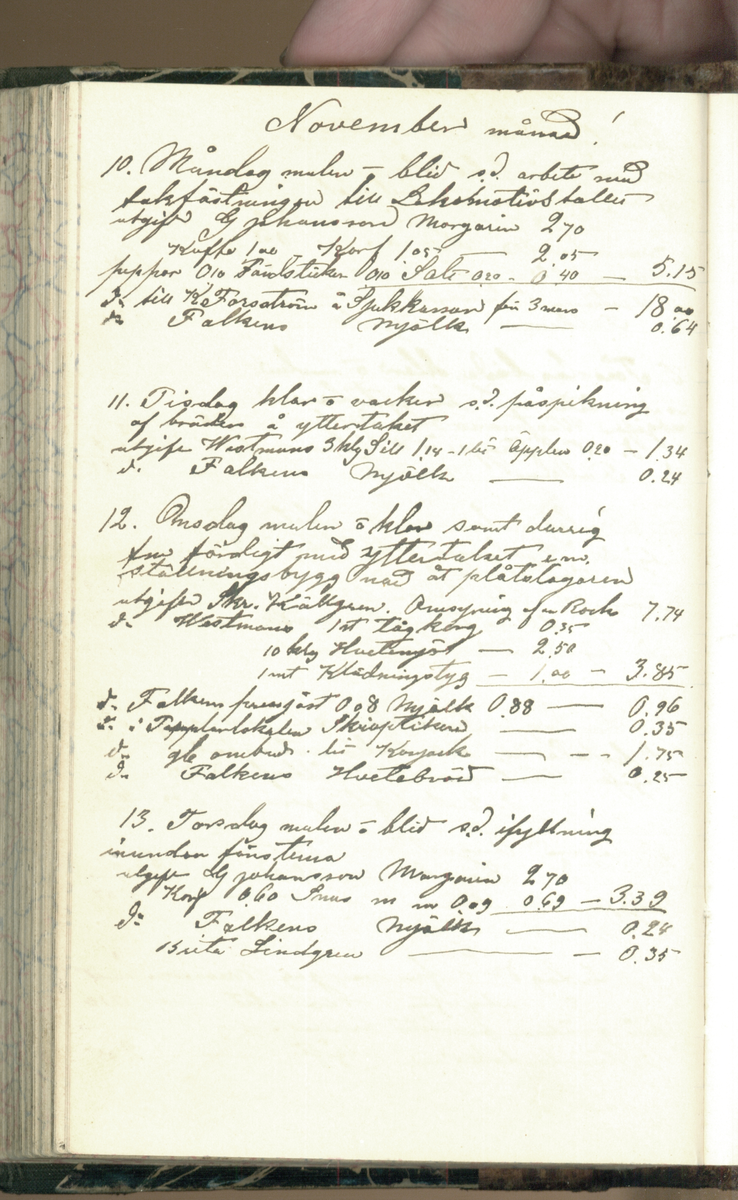 November månad!
10. Måndag mulen o blid s.d. arbete med
takfästningen till Lokomotivstallet
utgift G Johansson Margarin 2.70
Kaffe 1.00 Korf 1.05 2.05
peppar 0.10 Tändstickor 0.10 Salt 0.20 - 0.40 — 5.15
do till K Forsström å Sjukkassan för 3 mars — 18.00
do Falkens Mjölk — 0.64
11. Tisdag klar o vacker s.d. påspikning
af bräder å yttertaket
utgift Westmans 3 klg Sill 1.14 - 1 lit Äpplen 0.20 — 1.34
d. Falkens Mjölk — 0.24
12. Onsdag mulen o klar samt
färdigt med yttertaket e.m.
ställningsbyggnad åt plåtslagaren
utgift Skr. Källgren. Omsyning af en Rock 7.74
do Westmans 1 st tågkorg 0.35
10 klg Hvetemjöl — 2.50
1 mt Klädningstyg — 1.00 — 3.85
do Falkens pressjäst 0.08 Mjölk 0.88 — 0.96
do i Templarlokalen Skioptikon — 0.35
do lit — 1.75
do Falkens Hvetebröd — 0.25
13. Torsdag mulen o blid s.d. ifyllning
inunder fönsterna
utgift G Johansson Margarin 2.70
Korf 0.60 Snus m m 0.09 0.69 — 3.39
do Falkens Mjölk — 0.24
Lindgren — 0.35